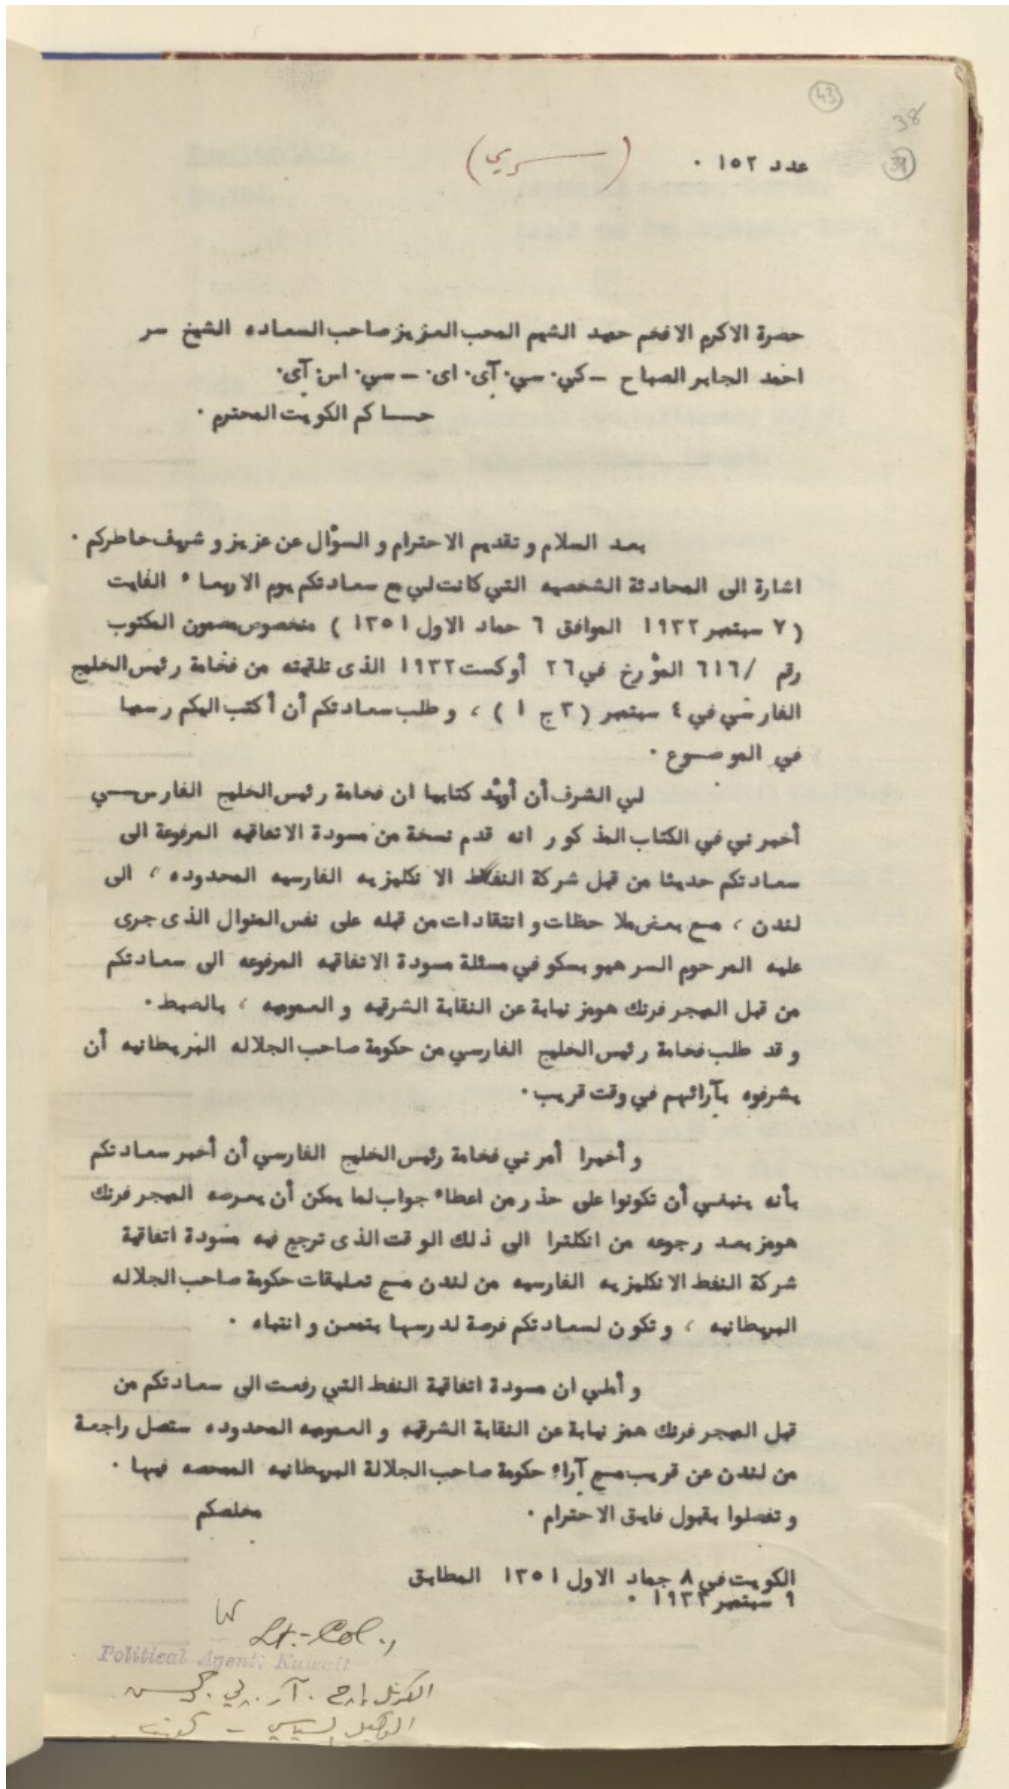 43
38
39
عدد ١٥٢ ٠
( سري )
حضرة الاكرم الافخم حميد الشيم المحب العزيز صاحب السعاده الشيخ سر
احمد الجابر الصباح – كي٠ سي٠ آى٠ اى٠ – سي٠ اس٠ آى٠
حاكم الكويت المحترم ٠
بعد السلام و تقديم الاحترام و السؤال عن عزيز و شريف خاطركم ٠
اشارة الى المحادثة الشخصيه التي كانت لي مع سعادتكم يوم الاربعاء الفايت
( ٧ سبتمبر ١٩٣٢ الموافق ٦ جماد الاول ١٣٥١ ) منخصوص مضمون المكتوب
رقم /٦١٦ المؤرخ في ٢٦ أوكست ١٩٣٢ الذى تلقيته من فخامة رئيس الخليج
الفارسي في ٤ سبتمبر ( ٣ ج ١ ) ، و طلب سعادتكم أن أكتب اليكم رسميا
في الموضوع ٠
لي الشرف أن أؤيد كتابيا ان فخامة رئيس الخليج الفارسي
أخبرني في الكتاب المذكور انه قدم نسخة من مسودة الاتفاقيه المرفوعة الى
سعادتكم حديثا من قبل شركة النفط الانكليزيه الفارسيه المحدوده ، الى
لندن ، مع بعض ملاحظات و انتقادات من قبله على نفس المنوال الذى جرى
عليه المرحوم السر هيو بسكو في مسئلة مسودة الاتفاقيه المرفوعه الى سعادتكم
من قبل الميجر فرنك هومز نيابة عن النقابة الشرقيه و العموميه ، بالضبط ٠
و قد طلب فخامة رئيس الخليج الفارسي من حكومة صاحب الجلاله البريطانيه أن
يشرفوه بآرائهم في وقت قريب ٠
و أخيرا أمرني فخامة رئيس الخليج الفارسي أن أخبر سعادتكم
بأنه ينبغي أن تكونوا على حذر من اعطاء جواب لما يمكن أن يعرضه الميجر فرنك
هومز بعد رجوعه من انكلترا الى ذلك الوقت الذى ترجع فيه مسودة اتفاقية
شركة النفط الانكليزيه الفارسيه من لندن مع تعليقات حكومة صاحب الجلاله
البريطانيه ، و تكون لسعادتكم فرصة لدرسها بتمعن و انتباه ٠
و أملي ان مسودة اتفاقية النفط التي رفعت الى سعادتكم من
قبل الميجر فرنك همز نيابة عن النقابة الشرقيه و العموميه المحدوده ستصل راجعة
من لندن عن قريب مع آراء حكومة صاحب الجلالة البريطانيه الممحصه فيها ٠
و تفضلوا بقبول فايق الاحترام ٠ مخلصكم
الكويت في ٨ جماد الاول ١٣٥١ المطابق
٩ سبتمبر ١٩٣٢ ٠
Lt.-Col.,
Political Agent, Kuwait
الكرنل إيج . آر . بي . دكسن
الوكيل السياسي – كويت